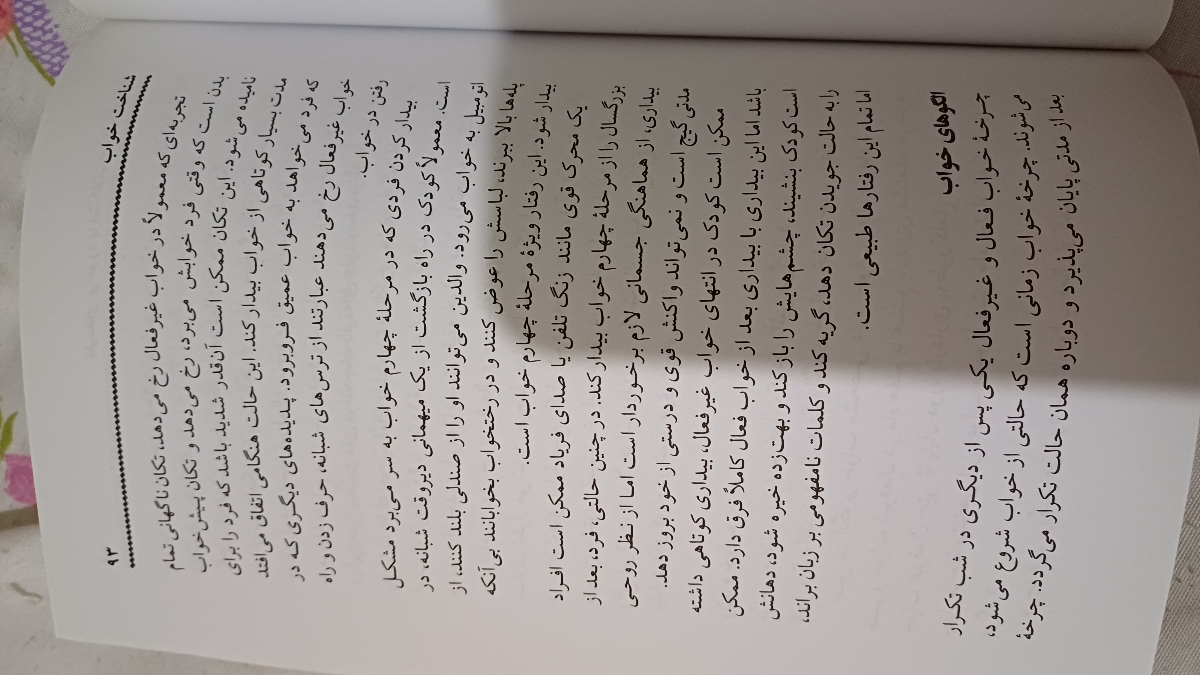 شناخت خواب ۹۳
تجربه‌ای که معمولاً در خواب غیرفعال رخ می‌دهد، تکان ناگهانی تمام
بدن است که وقتی فرد خوابش می‌برد، رخ می‌دهد و تکان پیش‌خواب
نامیده می‌شود. این تکان ممکن است آن‌قدر شدید باشد که فرد را برای
مدت بسیار کوتاهی از خواب بیدار کند. این حالت هنگامی اتفاق می‌افتد
که فرد می‌خواهد به خواب عمیق فروبرود. پدیده‌های دیگری که در
خواب غیرفعال رخ می‌دهند عبارتند از ترس‌های شبانه، حرف زدن و راه
رفتن در خواب.
بیدار کردن فردی که در مرحلهٔ چهارم خواب به سر می‌برد مشکل
است. معمولاً کودک در راه بازگشت از یک میهمانی دیروقت شبانه، در
اتومبیل به خواب می‌رود. والدین می‌توانند او را از صندلی بلند کنند، از
پله‌ها بالا ببرند، لباسش را عوض کنند و در رختخواب بخوابانند بی‌آنکه
بیدار شود. این رفتار ویژهٔ مرحلهٔ چهارم خواب است.
یک محرک قوی مانند زنگ تلفن یا صدای فریاد ممکن است افراد
بزرگسال را از مرحلهٔ چهارم خواب بیدار کند. در چنین حالتی، فرد، بعد از
بیداری، از هماهنگی جسمانی لازم برخوردار است اما از نظر روحی
مدتی گیج است و نمی‌تواند واکنش قوی و درستی از خود بروز دهد.
ممکن است کودک در انتهای خواب غیرفعال، بیداری کوتاهی داشته
باشد اما این بیداری با بیداری بعد از خواب فعال کاملاً فرق دارد. ممکن
است کودک بنشیند، چشم‌هایش را باز کند و بهت‌زده خیره شود، دهانش
را به حالت جویدن تکان دهد، گریه کند و کلمات نامفهومی بر زبان براند،
اما تمام این رفتارها طبیعی است.
الگوهای خواب
چرخهٔ خواب فعال و غیرفعال یکی پس از دیگری در شب تکرار
می‌شوند. چرخهٔ خواب زمانی است که حالتی از خواب شروع می‌شود،
بعد از مدتی پایان می‌پذیرد و دوباره همان حالت تکرار می‌گردد. چرخهٔ